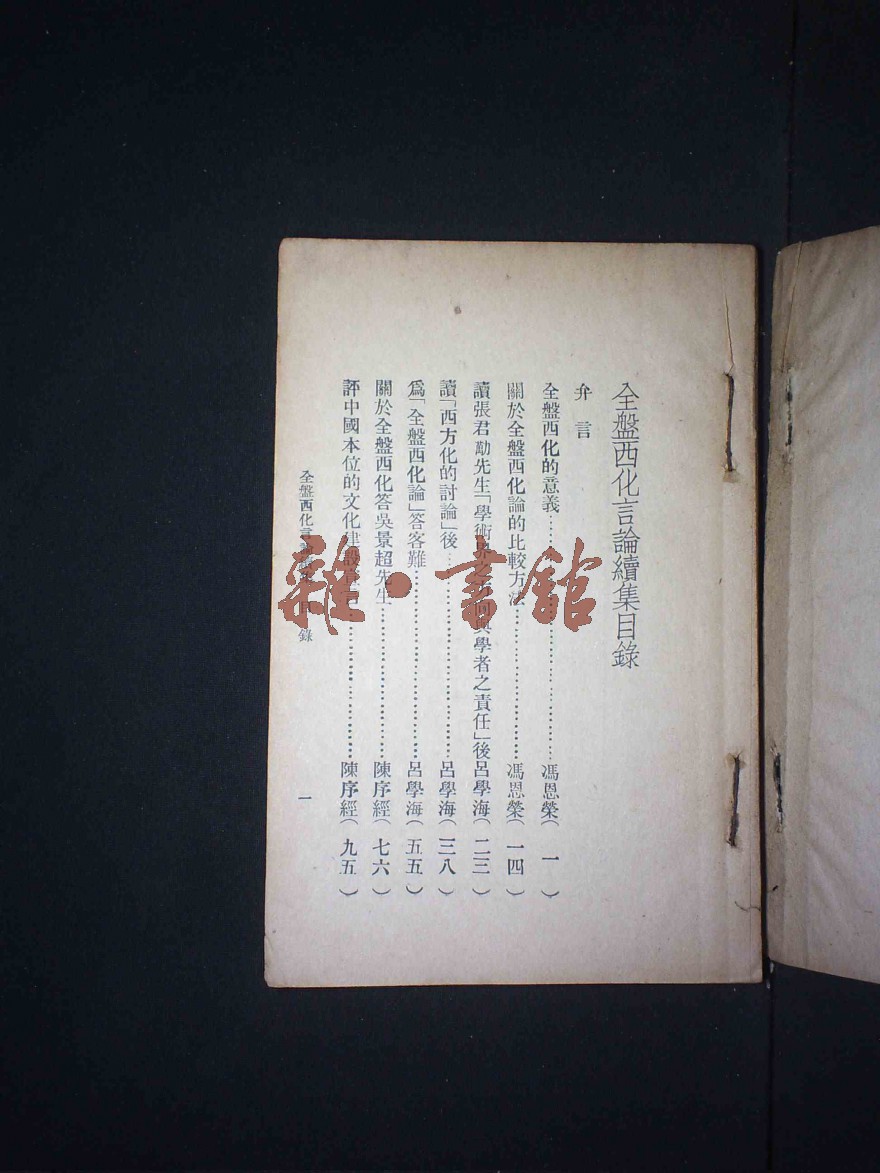 全盤西化言論續集目錄
弁言
全盤西化的意義……馮恩榮（一）
關於全盤西化論的比較方法……馮恩榮（一四）
讀張君勱先生「學術界之方向與學者之責任」後呂學海（二三）
讀「西方化的討論」後……呂學海（三八）
爲「全盤西化論」答客難……呂學海（五五）
關於全盤西化答吳景超先生……陳序經（七六）
評中國本位的文化建設宣言……陳序經（九五）
全盤西化言論續集 目錄
一
雜·書館